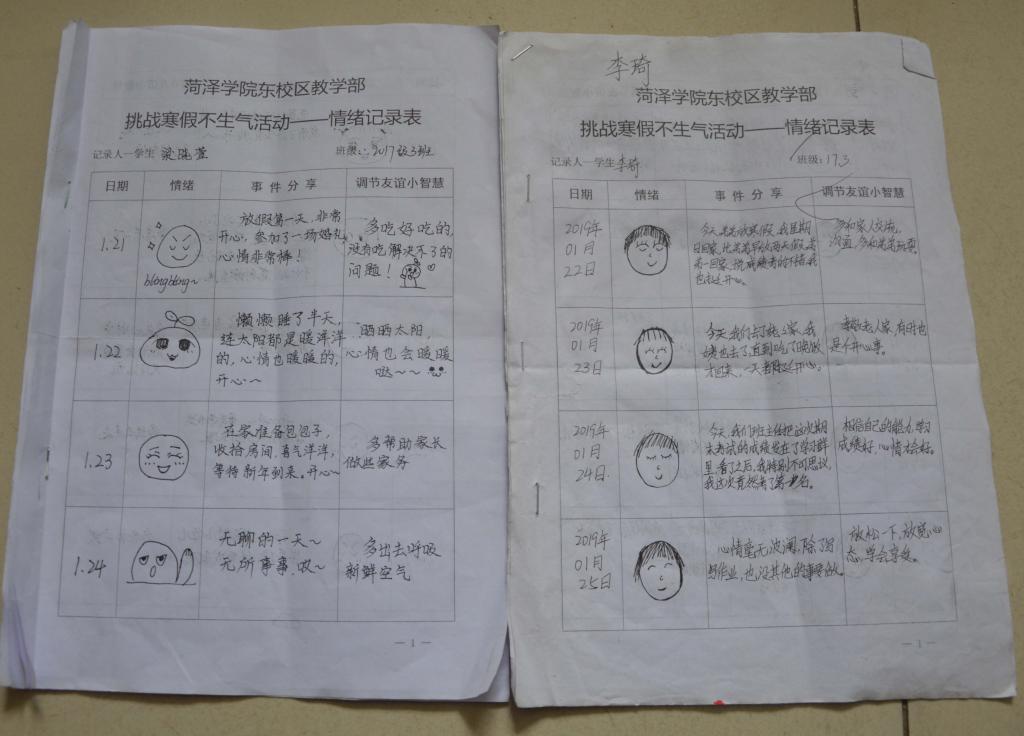 菏泽学院东校区教学部
挑战寒假不生气活动——情绪记录表
记录人—学生
班级: 2017级3班
日期 情绪 事件分享 调节友谊小智慧
1.21
blingbling~
放假第一天,非常
开心,参加了一场婚礼,
心情非常棒!
多吃好吃的,
没有吃解决不了的
问题!
1.22
懒懒睡了半天,
连太阳都是暖洋洋
的,心情也暖暖的,
开心~
晒晒太阳,
心情也会暖暖
哒~~
1.23
在家准备包包子,
收拾房间,喜气洋洋,
等待新年到来。开心~
多帮助家长
做些家务
1.24
无聊的一天~
无所事事,哎~
多出去呼吸
新鲜空气
— 1 —
李琦
菏泽学院东校区教学部
挑战寒假不生气活动——情绪记录表
记录人—学生李琦
班级: 17.3
日期 情绪 事件分享 调节友谊小智慧
2019年
01月
22日
多和家人交流,
2019年
01月
23日
今天,我们去了
也去了,直到吃了晚饭
才回来,一天都
开心。
老人家,有时也
是个开心事。
2019年
01月
24日
今天,我们班主任把这次期
末考试的成绩发在了学习群
里,看了之后,我特别不可思议,
我这次竟然考了第
名。
相信自己的能力,学习
成绩好,心情才会好。
2019年
01月
25日
心情毫无波澜,除了写
写作业,也没其他的事要做。
放松一下,放宽心
态,学会享受。
— 1 —